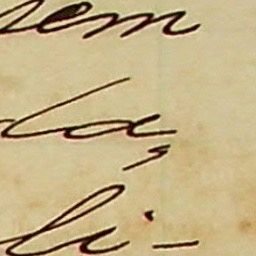 sem
da,
li-